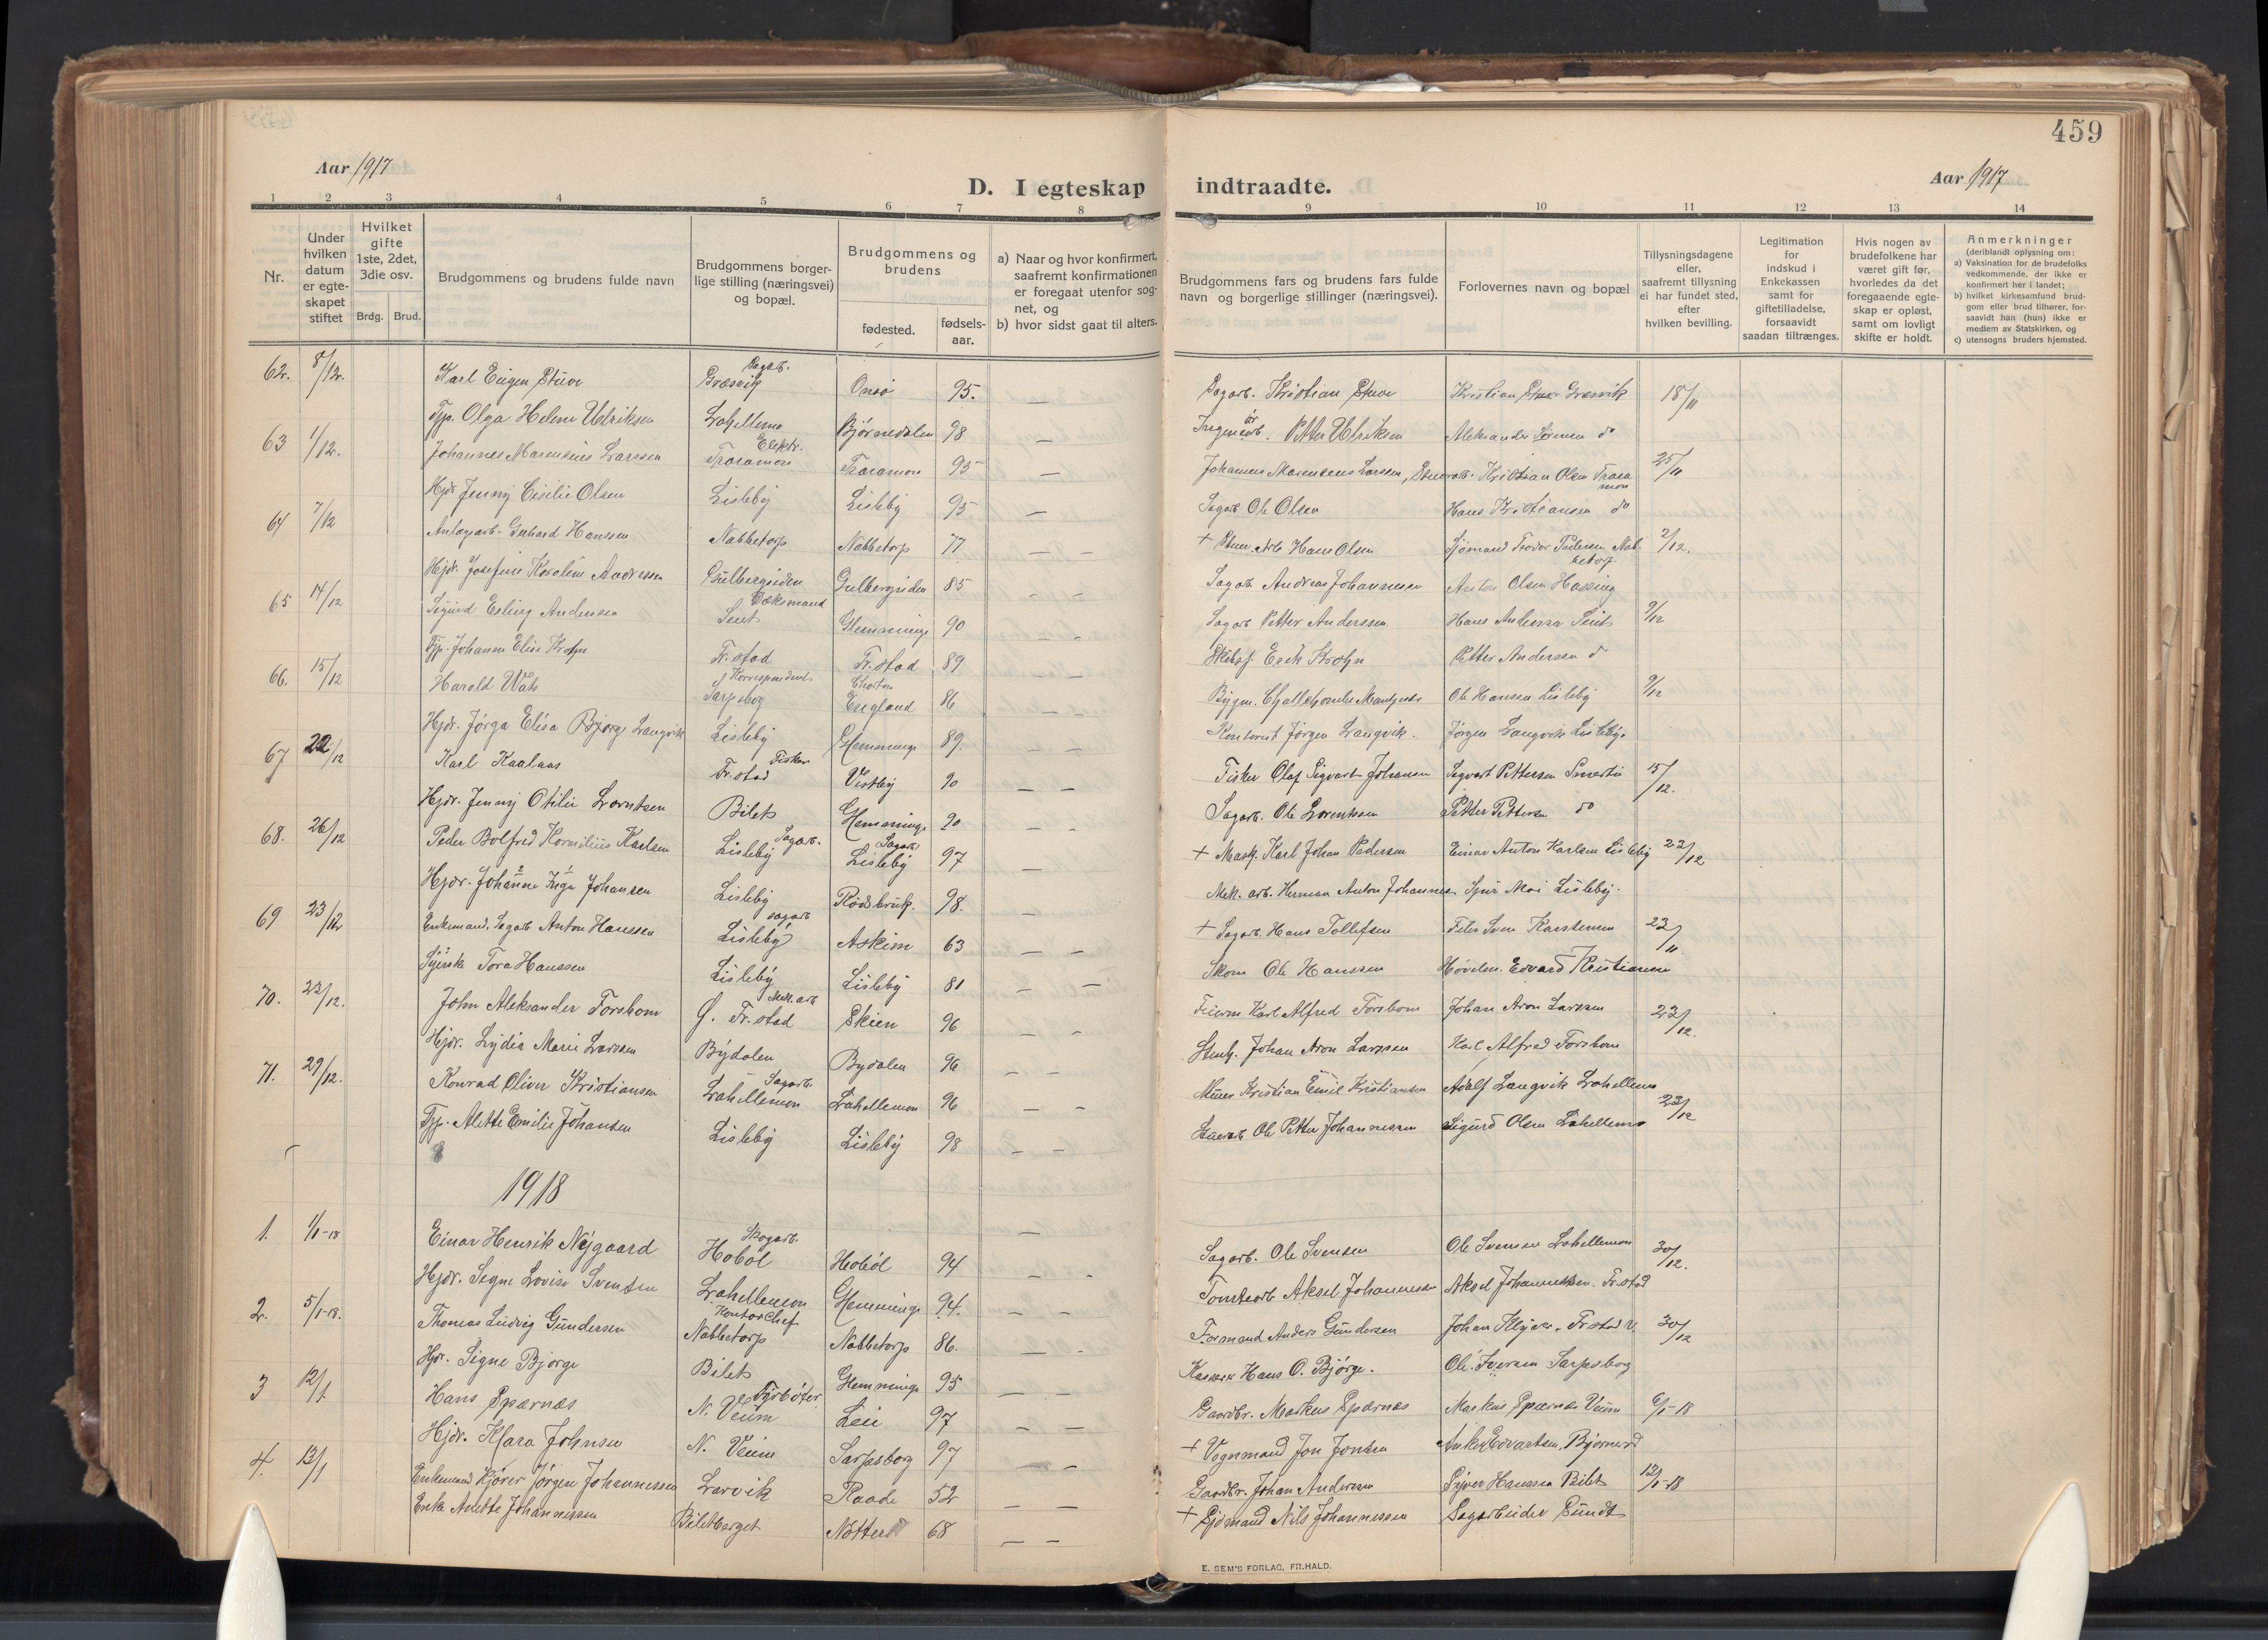 459
Aar 1917
D. I egteskap indtraadte.
Aar 1917
1 2 3 4 5 6 7 8 9 10 11 12 13 14
Nr.
Under hvilken datum er egteskapet stiftet
Hvilket gifte 1ste, 2det, 3die osv.
Brdg. Brud.
Brudgommens og brudens fulde navn
Brudgommens borgerlige stilling (næringsvei) og bopæl.
Brudgommens og brudens
fødested.
fødsels-aar.
a) Naar og hvor konfirmert, saafremt konfirmationen er foregaat utenfor sognet, og
b) hvor sidst gaat til alters.
Brudgommens fars og brudens fars fulde navn og borgerlige stillinger (næringsvei).
Forlovernes navn og bopæl
Tillysningsdagene eller, saafremt tillysning ei har fundet sted, efter hvilken bevilling.
Legitimation for indskud i Enkekassen samt for giftetilladelse, forsaavidt saadan tiltrænges.
Hvis nogen av brudefolkene har været gift før, hvorledes da det foregaaende egteskap er opløst, samt om lovligt skifte er holdt.
Anmerkninger
(deriblandt oplysning om:
a) Vaksination for de brudefolks vedkommende, der ikke er konfirmert her i landet;
b) hvilket kirkesamfund brudgom eller brud tilhører, forsaavidt han (hun) ikke er medlem av Statskirken, og
c) utensogns bruders hjemsted.
62. 8/12. Karl Eugen Stuve Sagarb. Græsvik Onsø 95. — Sagarb. Kristian Stuve Kristian Stuve Græsvik 18/11
Tjp. Olga Helene Ulriksen Lahellemo Bjørnedalen 98 — Petter Ulriksen Aleksander Sørensen do
63 1/12. Johannes Marensius Larssen Elektr. Traramon Traramon 95 — Johannes Marensius Larssen, Stuerarb. Kristian Olsen Trara mon 25/11
Hjdr. Jenny Cisilie Olsen Lisleby Lisleby 95 — Sagarb Ole Olsen Hans Kristiansen do
64 7/12 Anlægsarb. Gerhard Hanssen Nabbetorp Nabbetorp 77 — — + Stuer. Arb Hans Olsen Sjømand Teodor Pedersen Nabbetorp 2/12.
Hjdr. Josefine Karoline Andressen Gulbergsiden Gulbergsiden 85 — — Sagarb Andreas Johannesen Anton Olsen Hassing
65 14/12 Sigurd Erling Andersen Dæksmand Seut Glemminge 90 — — Sagarb Petter Anderssen Hans Andersen Seut 9/12
Tjp. Johanne Elise Krohn Fr.stad Fr.stad 89 Erik Krohn Petter Andersen do
66. 15/12 Harald Wats Korrespondent Sarpsborg England 86 Ole Hansen Lisleby 9/12
Hjdr. Jørga Elisa Bjørg Langvik Lisleby Glemminge 89. — — Kontorist Jørgen Langvik. Jørgen Langvik Lisleby.
67 22/12 Karl Kaalaas Fisker Fr.stad Vestby 90 — — Fisker Olaf Sigvart Johansen Sigvart Pettersen 15/12.
Hjdr. Jenny Otilie Lorntsen Bilet Glemminge 90 — — Sagarb. Ole Lorentsen Petter Pettersen do
68. 26/12 Peder Bolfred Kornelius Karlsen Sagarb. Lisleby (Sagarb) Lisleby 97 — + Mask. Karl Johan Pedersen Einar Anton Karlsen Lisleby 23/12
Hjdr. Johanne Inga Johansen Lisleby Rødsbruk. 98. — Mek. arb. Herman Anton Johannes Lisleby.
69 23/12 Enkemand. Sagarb Anton Hanssen Sagarb Lisleby Askim 63 — — + Sagarb. Hans Tollefsen Sven Karstensen 23/11
Syerske Tora Hanssen Lisleby Lisleby 81 — — Skom Ole Hanssen Høvelm. Edvard Kristiansen
70. 22/12. John Aleksander Forsbom Mek. arb Ø. Fr.stad Skien 96 — — Karl Alfred Forsbom Johan Aron Larssen 23/12.
Hjdr. Lydia Marie Larssen Bydalen Bydalen 96 — — Stenh. Johan Aron Larssen Karl Alfred Forsbom
71. 29/12. Konrad Oliver Kristiansen Sagarb Lahellemon Lahellemon 96 — — Murer Kristian Emil Kristiansen Adolf Langvik Lahellemo 23/12
Tjp. Alette Emilie Johansen Lisleby Lisleby 98 — — Stuerarb Ole Petter Johannessen Sigurd Olsen Lahellemo
1918
1. 1/1-18 Einar Henrik Nygaard Skogarb. Hobøl Hobøl 94 — Sagarb. Ole Svensen Ole Svensen Lahellemon 30/12.
Hjdr. Signe Lovise Svensen Lahellemon Glemminge 94. — — Tomtearb Aksel Johannessen Aksel Johannessen. Fr.stad
2. 5/1-18. Thomas Ludvig Gundersen Kontorchef Nabbetorp Nabbetorp 86. — — Formand Anders Gundersen Johan Klyver, Fr.stad V. 30/12
Hjr. Signe Bjørge Bilet Glemminge 95 — — Kasserer Hans O. Bjørge. Ole Iversen Sarpsborg
3 12/1. Hans Spærnæs Fyrbøter N. Veum Lei 97 — — Gaardbr. Markus Spærnæs Markus Spærnes Veum 6/1-18
Hjdr. Klara Johnsen N. Veum Sarpsborg 97 — + Vognmand Jon Jonsen Anker Edvartsen, Bjørnerd
4. 13/1 Enkemand Kjører Jørgen Johannessen Larvik Raade 52 — — Gaardbr. Johan Andersen Syver Hanssen Bilet 13/1-18
Enke Anette Johannessen Biletberget Nøtterø 68 — — + Sjømand Nils Johannessen Sagarbeider Sundt
E. SEM'S FORLAG, FR.HALD.